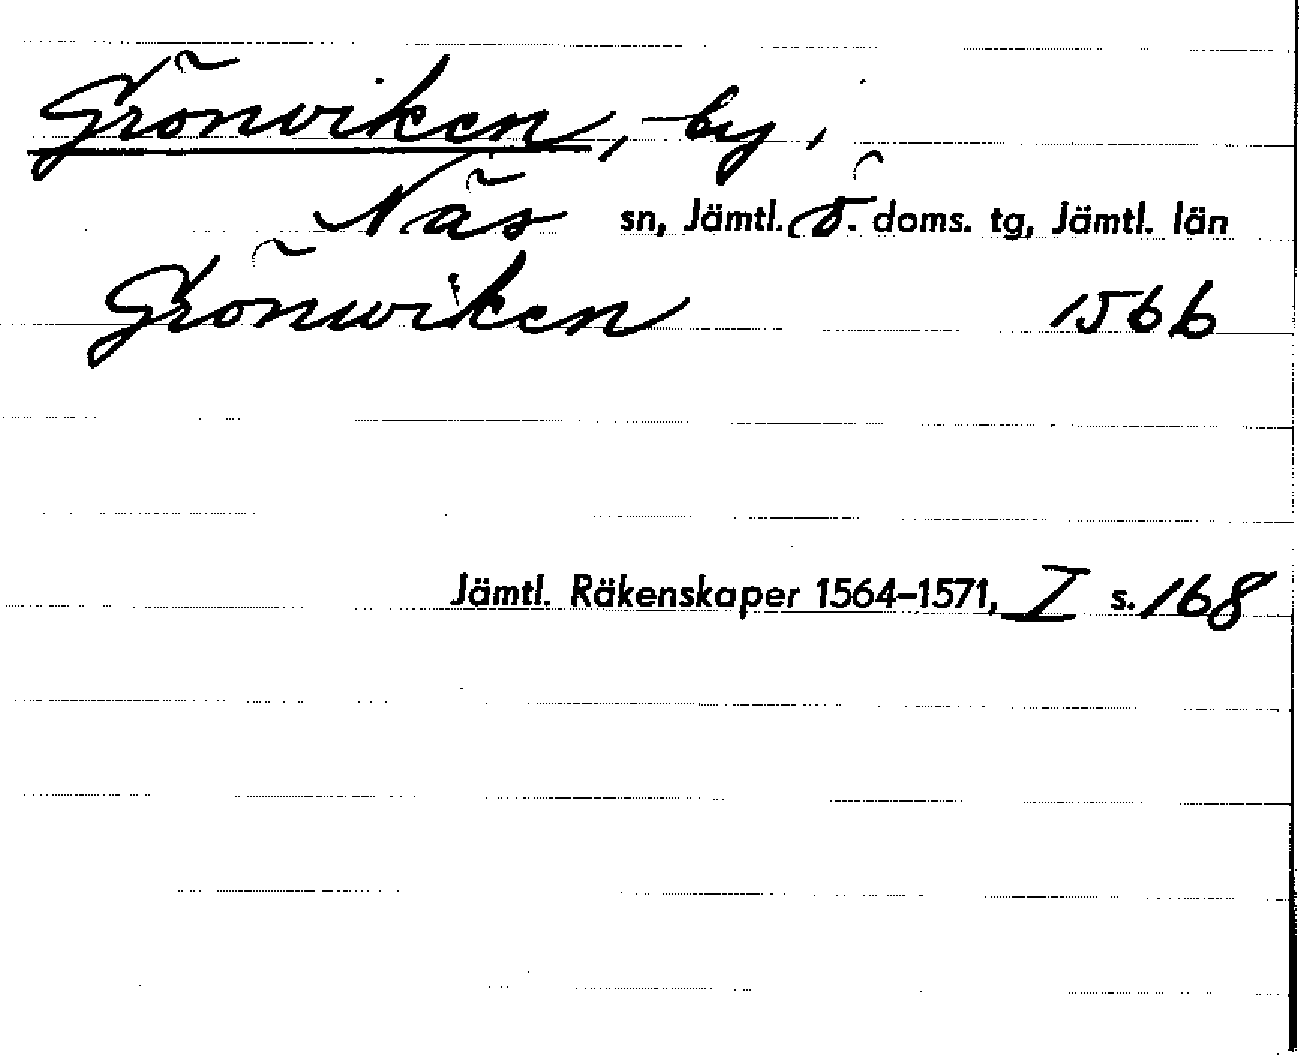 Grönviken, by,
Näs sn, Jämtl. ö. doms. tg, Jämtl. län
Grönwiken 1566
Jämtl. Räkenskaper 1564–1571, I s. 168